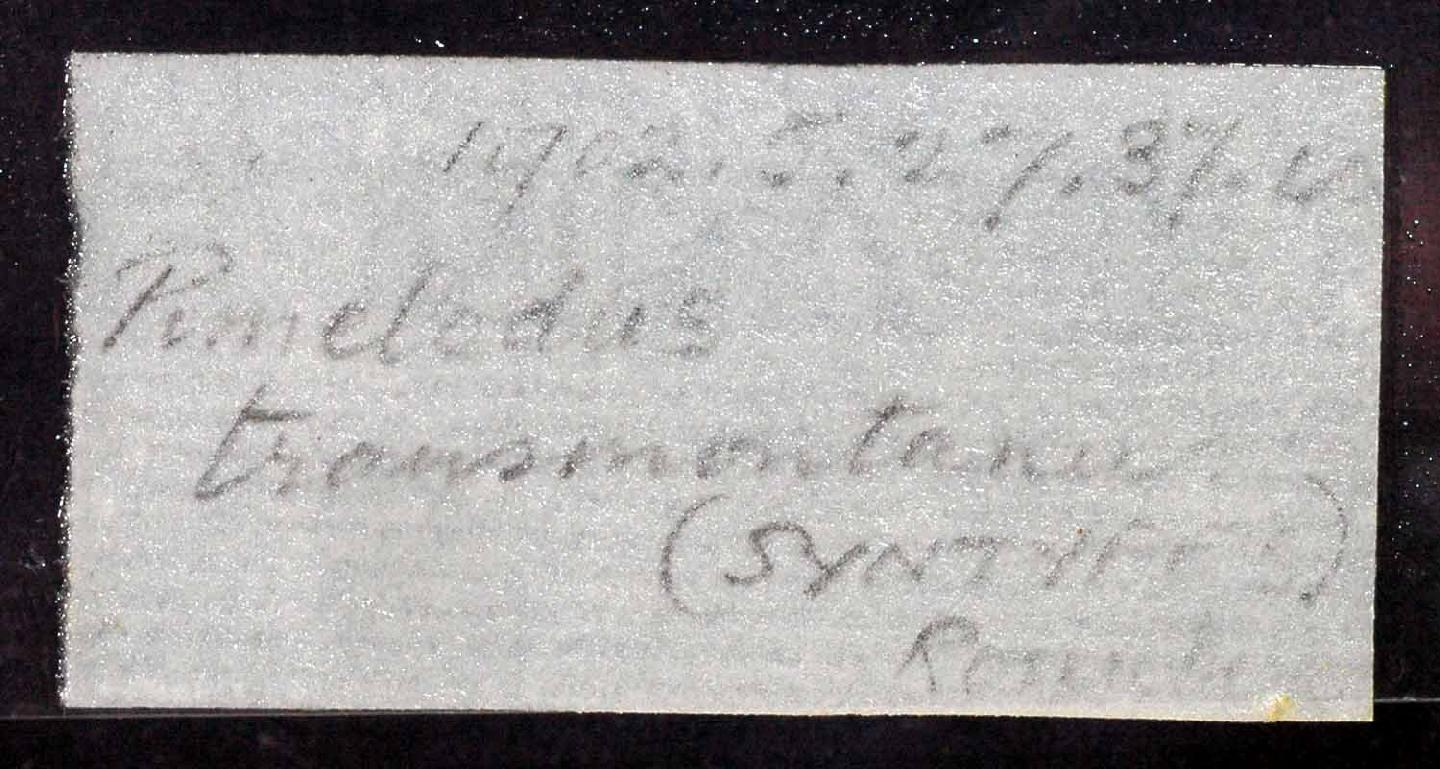 1902.5.27.37.
Pimelodus
transmontanu
(SYNTYPES)